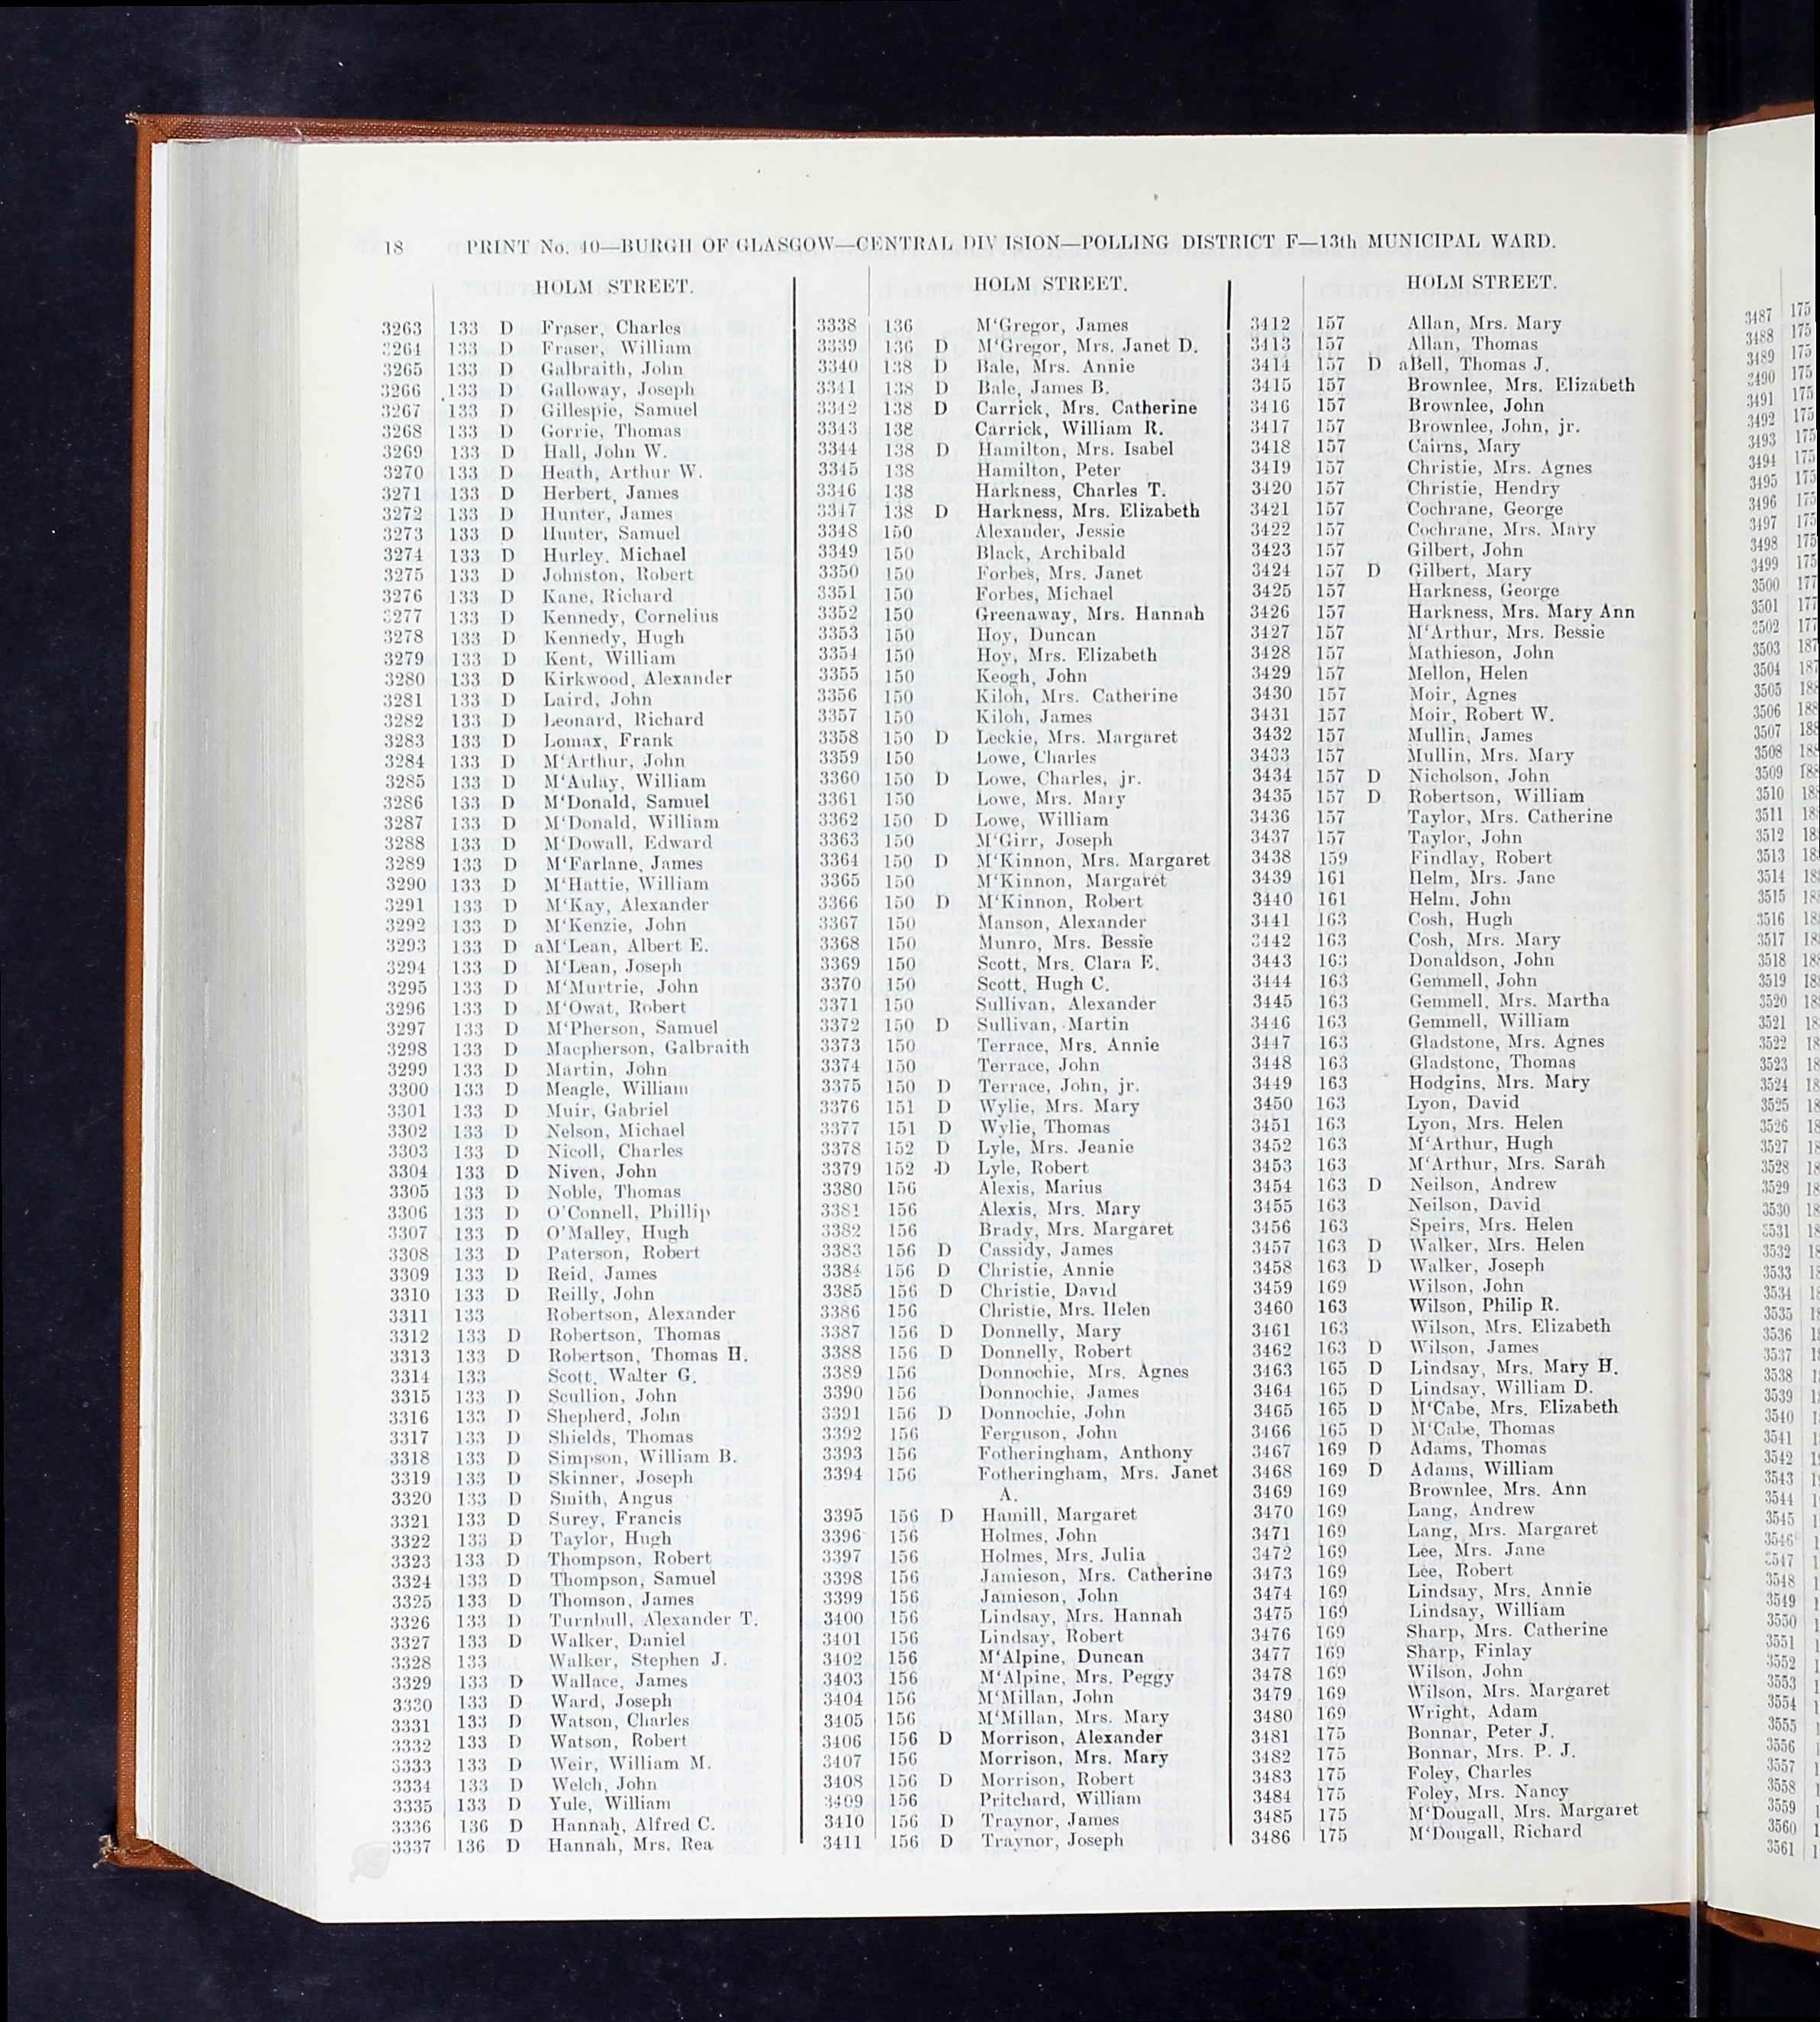 18 PRINT No. 40—BURGH OF GLASGOW—CENTRAL DIV ISION—POLLING DISTRICT F—13th MUNICIPAL WARD.
HOLM STREET.
3263 133 D Fraser, Charles
3264 133 D Fraser, William
3265 133 D Galbraith, John
3266 133 D Galloway, Joseph
3267 133 D Gillespie, Samuel
3268 133 D Gorrie, Thomas
3269 133 D Hall, John W.
3270 133 D Heath, Arthur W.
3271 133 D Herbert, James
3272 133 D Hunter, James
3273 133 D Hunter, Samuel
3274 133 D Hurley, Michael
3275 133 D Johnston, Robert
3276 133 D Kane, Richard
3277 133 D Kennedy, Cornelius
3278 133 D Kennedy, Hugh
3279 133 D Kent, William
3280 133 D Kirkwood, Alexander
3281 133 D Laird, John
3282 133 D Leonard, Richard
3283 133 D Lomax, Frank
3284 133 D M‘Arthur, John
3285 133 D M‘Aulay, William
3286 133 D M‘Donald, Samuel
3287 133 D M‘Donald, William
3288 133 D M‘Dowall, Edward
3289 133 D M‘Farlane, James
3290 133 D M‘Hattie, William
3291 133 D M‘Kay, Alexander
3292 133 D M‘Kenzie, John
3293 133 D aM‘Lean, Albert E.
3294 133 D M‘Lean, Joseph
3295 133 D M‘Murtrie, John
3296 133 D M‘Owat, Robert
3297 133 D M‘Pherson, Samuel
3298 133 D Macpherson, Galbraith
3299 133 D Martin, John
3300 133 D Meagle, William
3301 133 D Muir, Gabriel
3302 133 D Nelson, Michael
3303 133 D Nicoll, Charles
3304 133 D Niven, John
3305 133 D Noble, Thomas
3306 133 D O'Connell, Phillip
3307 133 D O'Malley, Hugh
3308 133 D Paterson, Robert
3309 133 D Reid, James
3310 133 D Reilly, John
3311 133 Robertson, Alexander
3312 133 D Robertson, Thomas
3313 133 D Robertson, Thomas H.
3314 133 Scott, Walter G.
3315 133 D Scullion, John
3316 133 D Shepherd, John
3317 133 D Shields, Thomas
3318 133 D Simpson, William B.
3319 133 D Skinner, Joseph
3320 133 D Smith, Angus
3321 133 D Surey, Francis
3322 133 D Taylor, Hugh
3323 133 D Thompson, Robert
3324 133 D Thompson, Samuel
3325 133 D Thomson, James
3326 133 D Turnbull, Alexander T.
3327 133 D Walker, Daniel
3328 133 Walker, Stephen J.
3329 133 D Wallace, James
3330 133 D Ward, Joseph
3331 133 D Watson, Charles
3332 133 D Watson, Robert
3333 133 D Weir, William M.
3334 133 D Welch, John
3335 133 D Yule, William
3336 136 D Hannah, Alfred C.
3337 136 D Hannah, Mrs. Rea
HOLM STREET.
3338 136 M‘Gregor, James
3339 136 D M‘Gregor, Mrs. Janet D.
3340 138 D Bale, Mrs. Annie
3341 138 D Bale, James B.
3342 138 D Carrick, Mrs. Catherine
3343 138 Carrick, William R.
3344 138 D Hamilton, Mrs. Isabel
3345 138 Hamilton, Peter
3346 138 Harkness, Charles T.
3347 138 D Harkness, Mrs. Elizabeth
3348 150 Alexander, Jessie
3349 150 Black, Archibald
3350 150 Forbes, Mrs. Janet
3351 150 Forbes, Michael
3352 150 Greenaway, Mrs. Hannah
3353 150 Hoy, Duncan
3354 150 Hoy, Mrs. Elizabeth
3355 150 Keogh, John
3356 150 Kiloh, Mrs. Catherine
3357 150 Kiloh, James
3358 150 D Leckie, Mrs. Margaret
3359 150 Lowe, Charles
3360 150 D Lowe, Charles, jr.
3361 150 Lowe, Mrs. Mary
3362 150 D Lowe, William
3363 150 M‘Girr, Joseph
3364 150 D M‘Kinnon, Mrs. Margaret
3365 150 M‘Kinnon, Margaret
3366 150 D M‘Kinnon, Robert
3367 150 Manson, Alexander
3368 150 Munro, Mrs. Bessie
3369 150 Scott, Mrs. Clara E.
3370 150 Scott, Hugh C.
3371 150 Sullivan, Alexander
3372 150 D Sullivan, Martin
3373 150 Terrace, Mrs. Annie
3374 150 Terrace, John
3375 150 D Terrace, John, jr.
3376 151 D Wylie, Mrs. Mary
3377 151 D Wylie, Thomas
3378 152 D Lyle, Mrs. Jeanie
3379 152 D Lyle, Robert
3380 156 Alexis, Marius
3381 156 Alexis, Mrs. Mary
3382 156 Brady, Mrs. Margaret
3383 156 D Cassidy, James
3384 156 D Christie, Annie
3385 156 D Christie, David
3386 156 Christie, Mrs. Helen
3387 156 D Donnelly, Mary
3388 156 D Donnelly, Robert
3389 156 Donnochie, Mrs. Agnes
3390 156 Donnochie, James
3391 156 D Donnochie, John
3392 156 Ferguson, John
3393 156 Fotheringham, Anthony
3394 156 Fotheringham, Mrs. Janet
A.
3395 156 D Hamill, Margaret
3396 156 Holmes, John
3397 156 Holmes, Mrs. Julia
3398 156 Jamieson, Mrs. Catherine
3399 156 Jamieson, John
3400 156 Lindsay, Mrs. Hannah
3401 156 Lindsay, Robert
3402 156 M‘Alpine, Duncan
3403 156 M‘Alpine, Mrs. Peggy
3404 156 M‘Millan, John
3405 156 M‘Millan, Mrs. Mary
3406 156 D Morrison, Alexander
3407 156 Morrison, Mrs. Mary
3408 156 D Morrison, Robert
3409 156 Pritchard, William
3410 156 D Traynor, James
3411 156 D Traynor, Joseph
HOLM STREET.
3412 157 Allan, Mrs. Mary
3413 157 Allan, Thomas
3414 157 D aBell, Thomas J.
3415 157 Brownlee, Mrs. Elizabeth
3416 157 Brownlee, John
3417 157 Brownlee, John, jr.
3418 157 Cairns, Mary
3419 157 Christie, Mrs. Agnes
3420 157 Christie, Hendry
3421 157 Cochrane, George
3422 157 Cochrane, Mrs. Mary
3423 157 Gilbert, John
3424 157 D Gilbert, Mary
3425 157 Harkness, George
3426 157 Harkness, Mrs. Mary Ann
3427 157 M‘Arthur, Mrs. Bessie
3428 157 Mathieson, John
3429 157 Mellon, Helen
3430 157 Moir, Agnes
3431 157 Moir, Robert W.
3432 157 Mullin, James
3433 157 Mullin, Mrs. Mary
3434 157 D Nicholson, John
3435 157 D Robertson, William
3436 157 Taylor, Mrs. Catherine
3437 157 Taylor, John
3438 159 Findlay, Robert
3439 161 Helm, Mrs. Jane
3440 161 Helm, John
3441 163 Cosh, Hugh
3442 163 Cosh, Mrs. Mary
3443 163 Donaldson, John
3444 163 Gemmell, John
3445 163 Gemmell, Mrs. Martha
3446 163 Gemmell, William
3447 163 Gladstone, Mrs. Agnes
3448 163 Gladstone, Thomas
3449 163 Hodgins, Mrs. Mary
3450 163 Lyon, David
3451 163 Lyon, Mrs. Helen
3452 163 M‘Arthur, Hugh
3453 163 M‘Arthur, Mrs. Sarah
3454 163 D Neilson, Andrew
3455 163 Neilson, David
3456 163 Speirs, Mrs. Helen
3457 163 D Walker, Mrs. Helen
3458 163 D Walker, Joseph
3459 169 Wilson, John
3460 163 Wilson, Philip R.
3461 163 Wilson, Mrs. Elizabeth
3462 163 D Wilson, James
3463 165 D Lindsay, Mrs. Mary H.
3464 165 D Lindsay, William D.
3465 165 D M‘Cabe, Mrs. Elizabeth
3466 165 D M‘Cabe, Thomas
3467 169 D Adams, Thomas
3468 169 D Adams, William
3469 169 Brownlee, Mrs. Ann
3470 169 Lang, Andrew
3471 169 Lang, Mrs. Margaret
3472 169 Lee, Mrs. Jane
3473 169 Lee, Robert
3474 169 Lindsay, Mrs. Annie
3475 169 Lindsay, William
3476 169 Sharp, Mrs. Catherine
3477 169 Sharp, Finlay
3478 169 Wilson, John
3479 169 Wilson, Mrs. Margaret
3480 169 Wright, Adam
3481 175 Bonnar, Peter J.
3482 175 Bonnar, Mrs. P. J.
3483 175 Foley, Charles
3484 175 Foley, Mrs. Nancy
3485 175 M‘Dougall, Mrs. Margaret
3486 175 M‘Dougall, Richard
3487 175
3488 175
3489 175
3490 175
3491 175
3492 175
3493 175
3494 175
3495 175
3496 175
3497 175
3498 175
3499 175
3500 177
3501 177
3502 177
3503 187
3504 187
3505
3506
3507
3508
3509
3510
3511
3512
3513
3514
3515
3516
3517
3518
3519
3520
3521
3522
3523
3524
3525
3526
3527
3528
3529
3530
3531
3532
3533
3534
3535
3536
3537
3538
3539
3540
3541
3542
3543
3544
3545
3546
3547
3548
3549
3550
3551
3552
3553
3554
3555
3556
3557
3558
3559
3560
3561